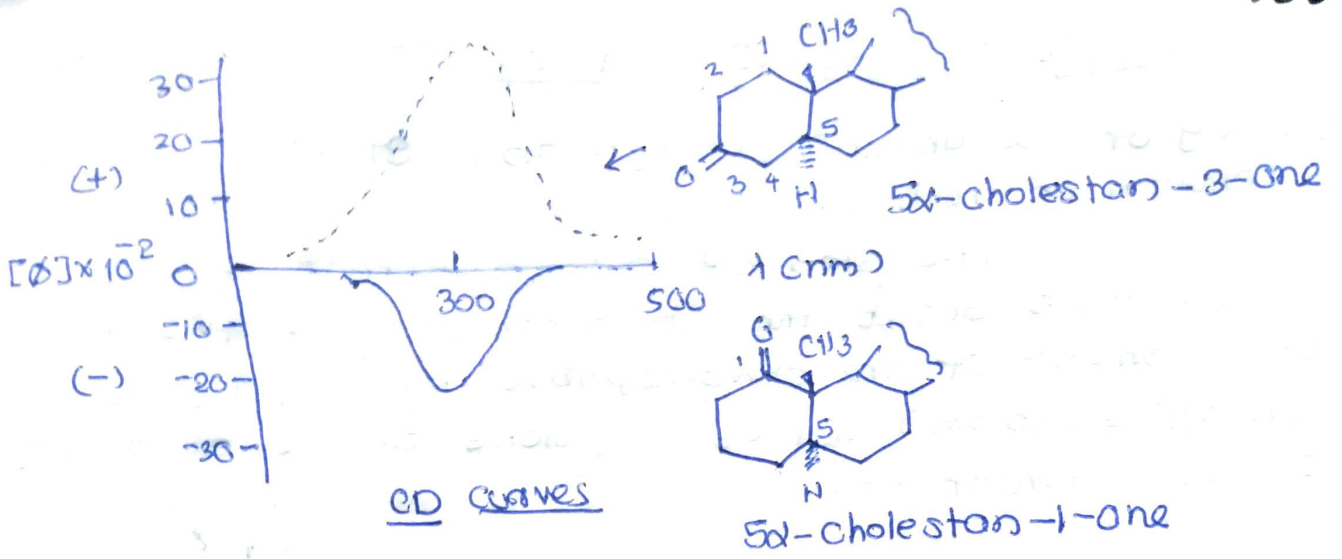 30
20
(+)
10
[Ø]×10⁻² 0
-10
(-) -20
-30
300 500 λ (nm)
CD curves
1 CH3
2
5
O 3 4 H
5α-cholestan-3-one
O
1 CH3
5
H
5α-cholestan-1-one